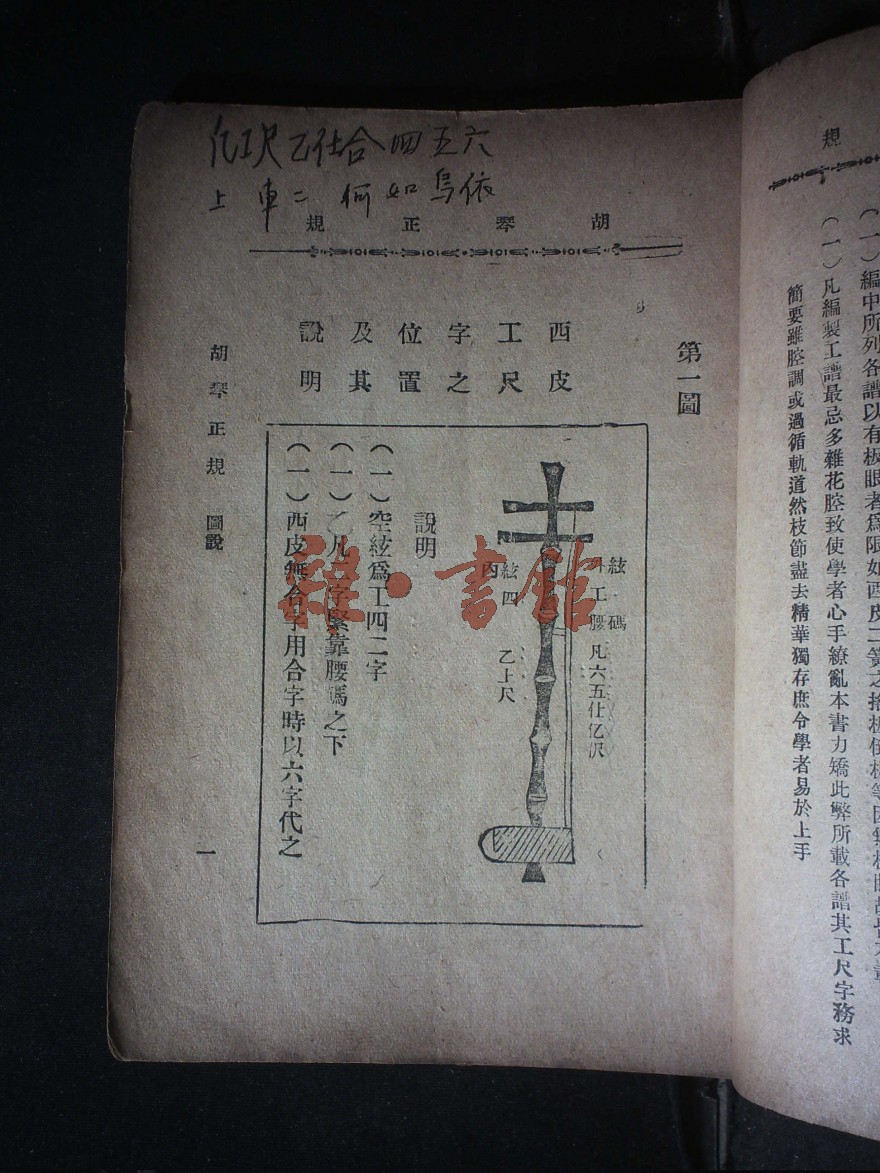 規
(一)編中所列各譜以有板眼者爲限如西皮二簧之
(一)凡編製工譜最忌多雜花腔致使學者心手繚亂本書力矯此弊所載各譜其工尺字務求
簡要雖腔調或過循軌道然枝節盡去精華獨存庶令學者易於上手
尺乙仕合四五六
上車二何如烏依
胡琴正規
第一圖
西皮
工尺
字之
位置
及其
說明
外絃
工
腰碼
凡六五仕亿伬
內絃
四
乙上尺
說明
(一)空絃爲工四二字
(一)乙凡二字緊靠腰碼之下
(一)西皮無合字用合字時以六字代之
胡琴正規 圖說
一
雜·書館